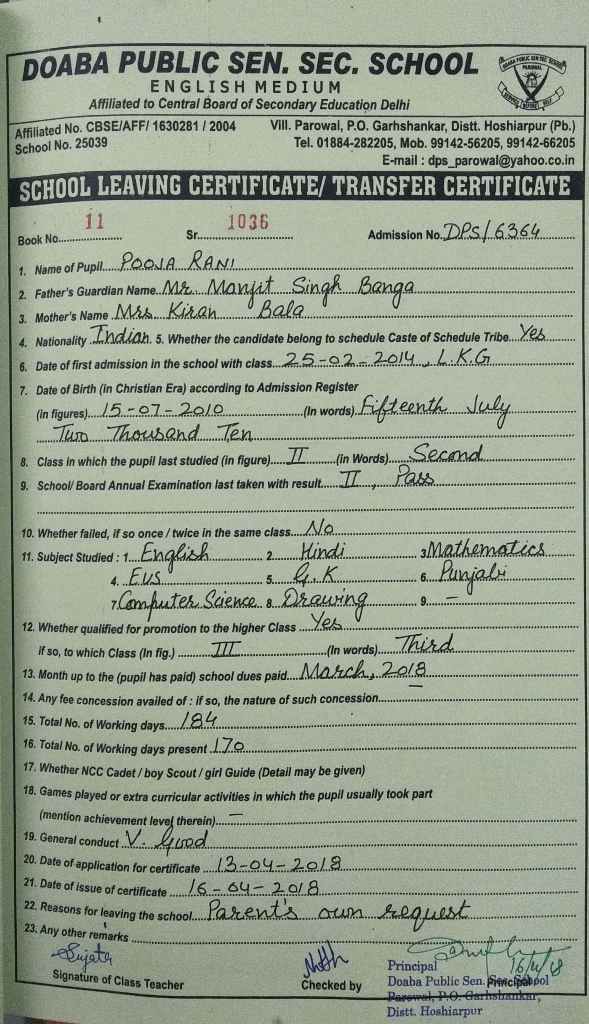 DOABA PUBLIC SEN. SEC. SCHOOL
ENGLISH MEDIUM
Affiliated to Central Board of Secondary Education Delhi
Affiliated No. CBSE/AFF/ 1630281 / 2004 Vill. Parowal, P.O. Garhshankar, Distt. Hoshiarpur (Pb.)
School No. 25039 Tel. 01884-282205, Mob. 99142-56205, 99142-66205
E-mail : dps_parowal@yahoo.co.in
SCHOOL LEAVING CERTIFICATE/ TRANSFER CERTIFICATE
Book No. 11 Sr. 1036 Admission No. DPS/6364
1. Name of Pupil POOJA RANI
2. Father's Guardian Name Mr. Manjit Singh Banga
3. Mother's Name Mrs Kiran Bala
4. Nationality Indian. 5. Whether the candidate belong to schedule Caste of Schedule Tribe Yes
6. Date of first admission in the school with class 25-02-2014, L.K.G
7. Date of Birth (in Christian Era) according to Admission Register
(in figures) 15-07-2010 (In words) Fifteenth July
Two Thousand Ten
8. Class in which the pupil last studied (in figure) II (in Words) Second
9. School/ Board Annual Examination last taken with result II, Pass
10. Whether failed, if so once / twice in the same class No
11. Subject Studied : 1. English 2. Hindi 3. Mathematics
4. EVS 5. G.K 6. Punjabi
7. Computer Science 8. Drawing 9. –
12. Whether qualified for promotion to the higher Class Yes
if so, to which Class (In fig.) III (In words) Third
13. Month up to the (pupil has paid) school dues paid March, 2018
14. Any fee concession availed of : if so, the nature of such concession –
15. Total No. of Working days 184
16. Total No. of Working days present 170
17. Whether NCC Cadet / boy Scout / girl Guide (Detail may be given)
18. Games played or extra curricular activities in which the pupil usually took part
(mention achievement level therein) –
19. General conduct V. Good
20. Date of application for certificate 13-04-2018
21. Date of issue of certificate 16-04-2018
22. Reasons for leaving the school Parent's own request
23. Any other remarks
Sujata 16/4/18
Signature of Class Teacher Checked by Principal
Principal
Doaba Public Sen. Sec. School
Parowal, P.O. Garhshankar,
Distt. Hoshiarpur